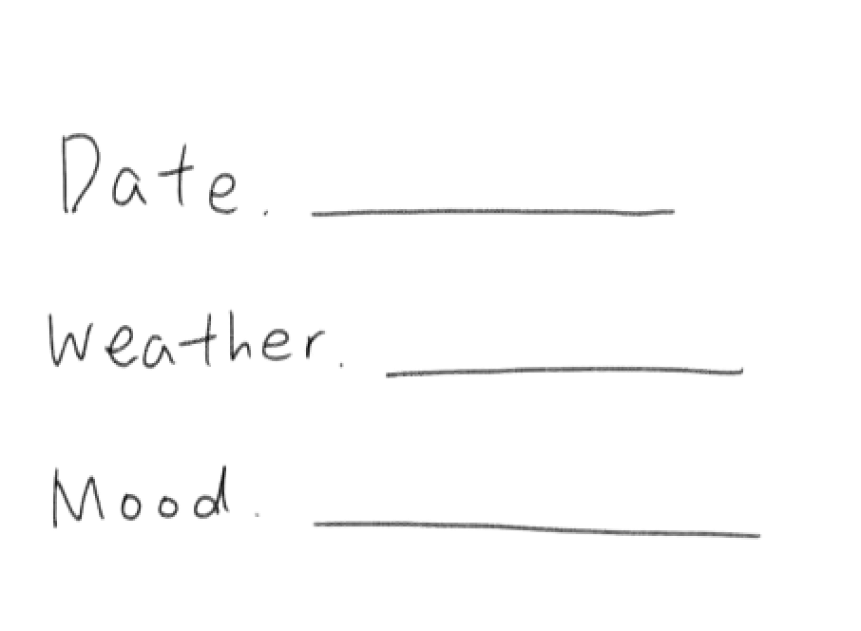 Date. ____________
Weather. ____________
Mood. ____________